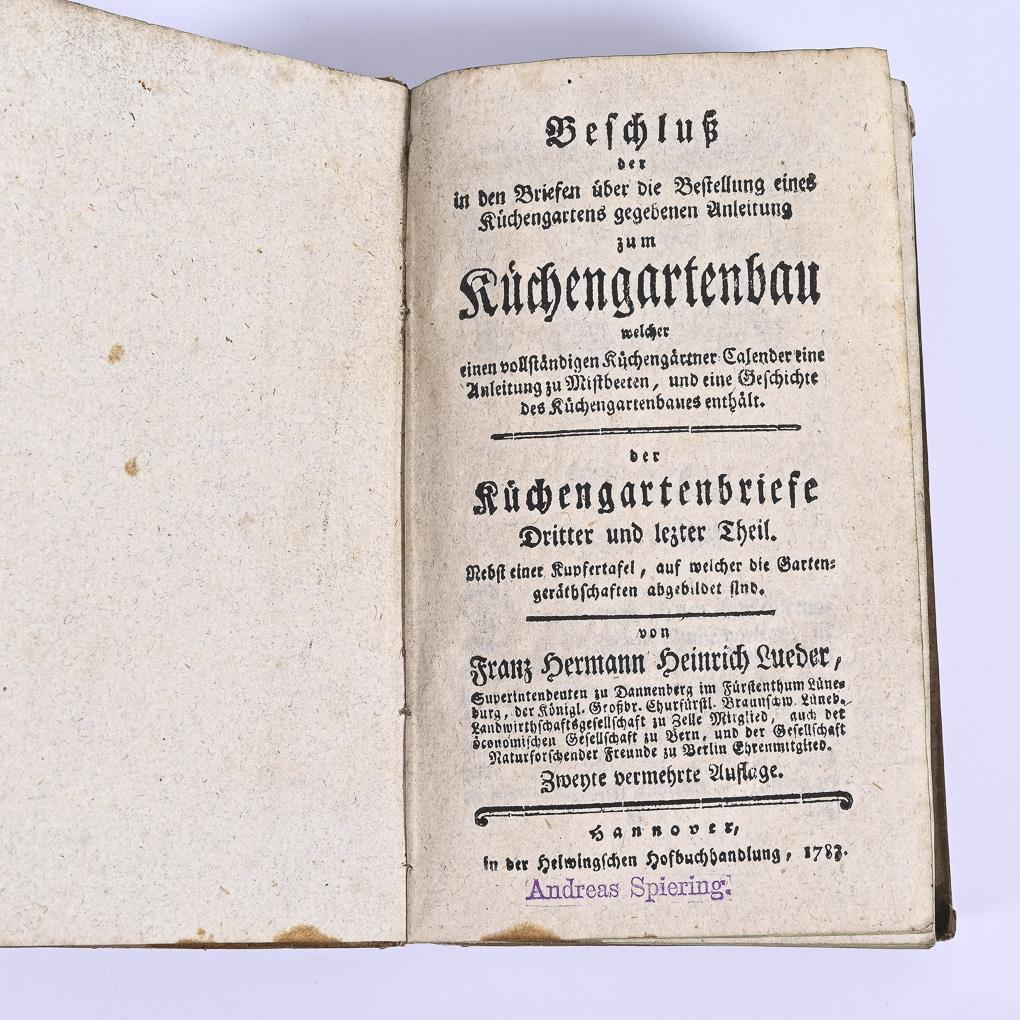 Beschluß
der
in den Briefen über die Bestellung eines
Küchengartens gegebenen Anleitung
zum
Küchengartenbau
welcher
einen vollständigen Küchengärtner Calender eine
Anleitung zu Mistbeeten, und eine Geschichte
des Küchengartenbaues enthält.
der
Küchengartenbriefe
Dritter und lezter Theil.
Nebst einer Kupfertafel, auf welcher die Garten-
geräthschaften abgebildet sind.
von
Franz Hermann Heinrich Lueder,
Superintendenten zu Dannenberg im Fürstenthum Lüne-
burg, der Königl. Großbr. Churfürstl. Braunschw. Lüneb.
Landwirthschaftsgesellschaft zu Zelle Mitglied, auch der
öconomischen Gesellschaft zu Bern, und der Gesellschaft
Naturforschender Freunde zu Berlin Ehrenmitglied.
Zweyte vermehrte Auflage.
Hannover,
in der Helwingschen Hofbuchhandlung, 1783.
Andreas Spiering